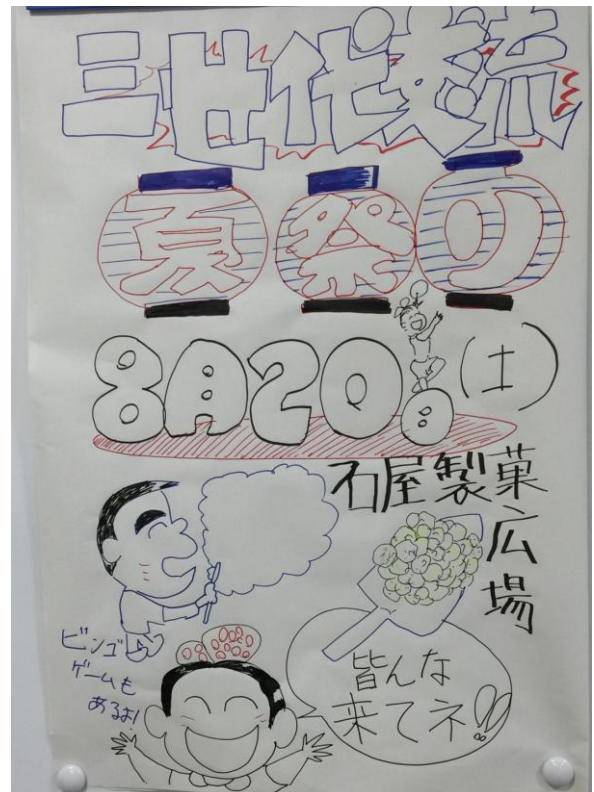 三世代交流
夏祭り
8月20日(土)
石屋製菓
広場
ビンゴ
ゲームも
あるよ!
皆んな
来てネ!!